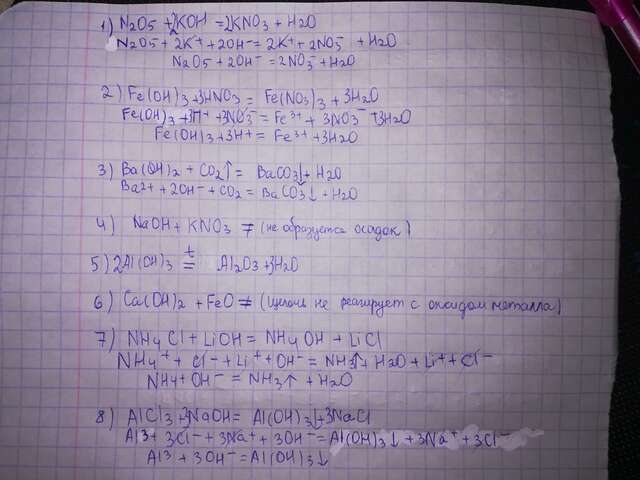 1) N2O5 + 2KOH = 2KNO3 + H2O
N2O5 + 2K+ + 2OH- = 2K+ + 2NO3- + H2O
N2O5 + 2OH- = 2NO3- + H2O
2) Fe(OH)3 + 3HNO3 = Fe(NO3)3 + 3H2O
Fe(OH)3 + 3H+ + 3NO3- = Fe3+ + 3NO3- + 3H2O
Fe(OH)3 + 3H+ = Fe3+ + 3H2O
3) Ba(OH)2 + CO2↑ = BaCO3↓ + H2O
Ba2+ + 2OH- + CO2 = BaCO3↓ + H2O
4) NaOH + KNO3 ≠ (не образуется осадок)
5) 2Al(OH)3 t= Al2O3 + 3H2O
6) Ca(OH)2 + FeO ≠ (щелочь не реагирует с оксидом металла)
7) NH4Cl + LiOH = NH4OH + LiCl
NH4+ + Cl- + Li+ + OH- = NH3↑ + H2O + Li+ + Cl-
NH4+ OH- = NH3↑ + H2O
8) AlCl3 + 3NaOH = Al(OH)3↓ + 3NaCl
Al3+ 3Cl- + 3Na+ + 3OH- = Al(OH)3↓ + 3Na+ + 3Cl-
Al3 + 3OH- = Al(OH)3↓